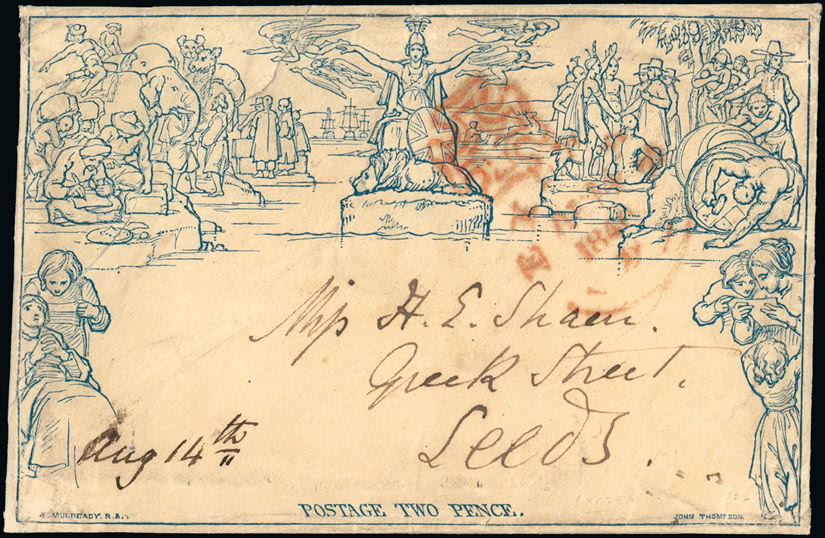 184
Miſs H. E. Shaen.
Greek Street.
Leeds.
Aug 14th
POSTAGE TWO PENCE.
W. MULREADY. R.A.
JOHN THOMPSON.